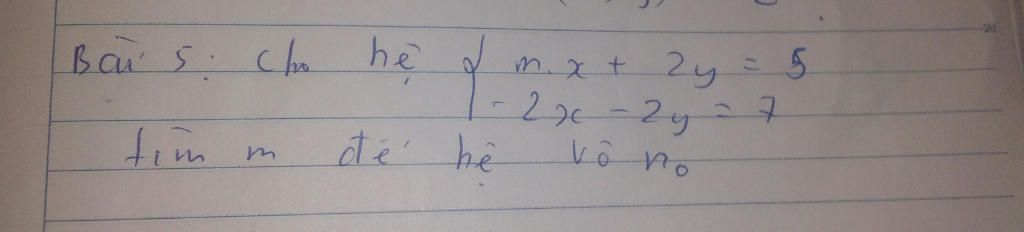 Bài 5: Cho hệ { m.x + 2y = 5
- 2x - 2y = 7
tìm m để hệ vô n₀